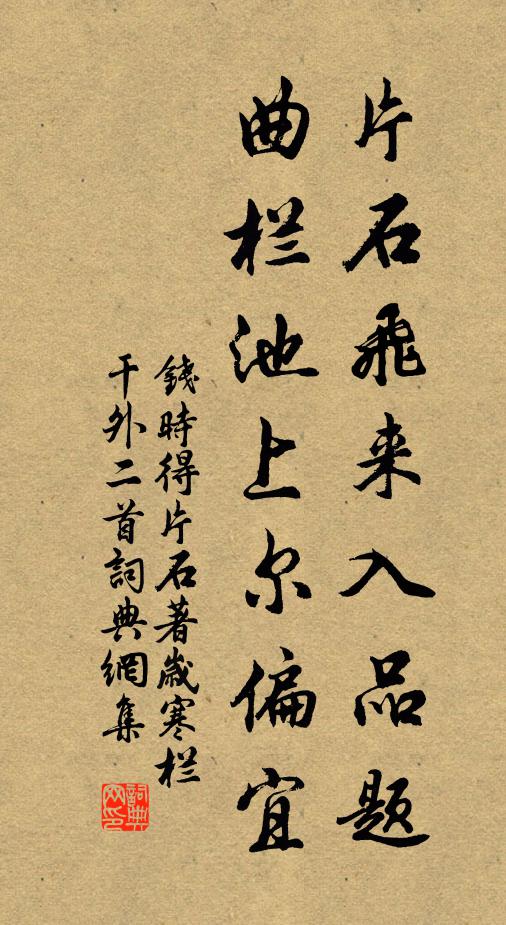 片石飛来入品题
曲栏池上尔偏宜
錢時得片石著歲寒栏
干外二首詞典網集
詞典网印